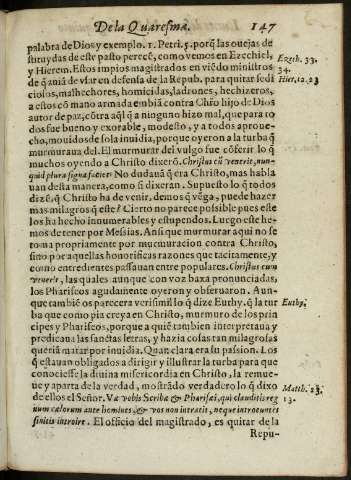 De la Quaresma.
147
palabra de Dios y exemplo. 1. Petri. 5. porq̃ las ouejas de
stituydas de este pasto perecẽ, como vemos en Ezechiel,
y Hierem. Estos impios magistrados en viẽdo ministros
de q̃ auiã de vsar en defensa de la Repub. para quitar sedi
ciosos, malhechores, homicidas, ladrones, hechizeros,
a estos cõ mano armada embiã contra Chrõ hijo de Dios
autor de paz, cõtra aq̃l q̃ a ninguno hizo mal, que para to
dos fue bueno y exorable, modesto, y a todos aproue-
cho, mouidos de sola inuidia, porque oyeron a la turba q̃
murmuraua del. El murmurar del vulgo fue cõferir lo q̃
muchos oyendo a Christo dixerõ. Christus cũ venerit, nun-
quid plura signa faciet? No dudauã q̃ era Christo, mas habla
uan desta manera, como si dixeran. Supuesto lo q̃ todos
dizẽ, q̃ Christo ha de venir, demos q̃ vẽga, puede hazer
mas milagros q̃ este? Cierto no parece possible pues este
los ha hecho innumerables y estupendos. Luego este he-
mos de tener por Messias. Ansi que murmurar aqui no se
toma propriamente por murmuracion contra Christo,
sino por aquellas honorificas razones que tacitamente, y
como entredientes passauan entre populares. Christus cum
venerit, las quales aunque con voz baxa pronunciadas,
los Phariseos agudamente oyeron y obseruaron. Aun-
que tambiẽ os parecera verisimil lo q̃ dize Euthy. q̃ la tur
ba que como pia creya en Christo, murmuro de los prin
cipes y Phariseos, porque a quiẽ tambien interpretaua y
predicaua las sanctas letras, y hazia cosas tan milagrosas
queriã matar por inuidia. Quan clara era su passion. Los q̃
q̃ estauan obligados a dirigir y illustrar la turba para que
conociesse la diuina misericordia en Christo, la remue-
ue y aparta de la verdad, mostrãdo verdadero lo q̃ dixo
de ellos el Señor. Væ vobis Scribæ & Pharisæi, qui clauditis reg
num cælorum ante homines, & vos non intratis, neque introeuntes
sinitis introire. El officio del magistrado, es quitar de la
Repu-
Ezech. 33.
34.
Hier. 12. 23
Euthy.
Matth. 23.
13.